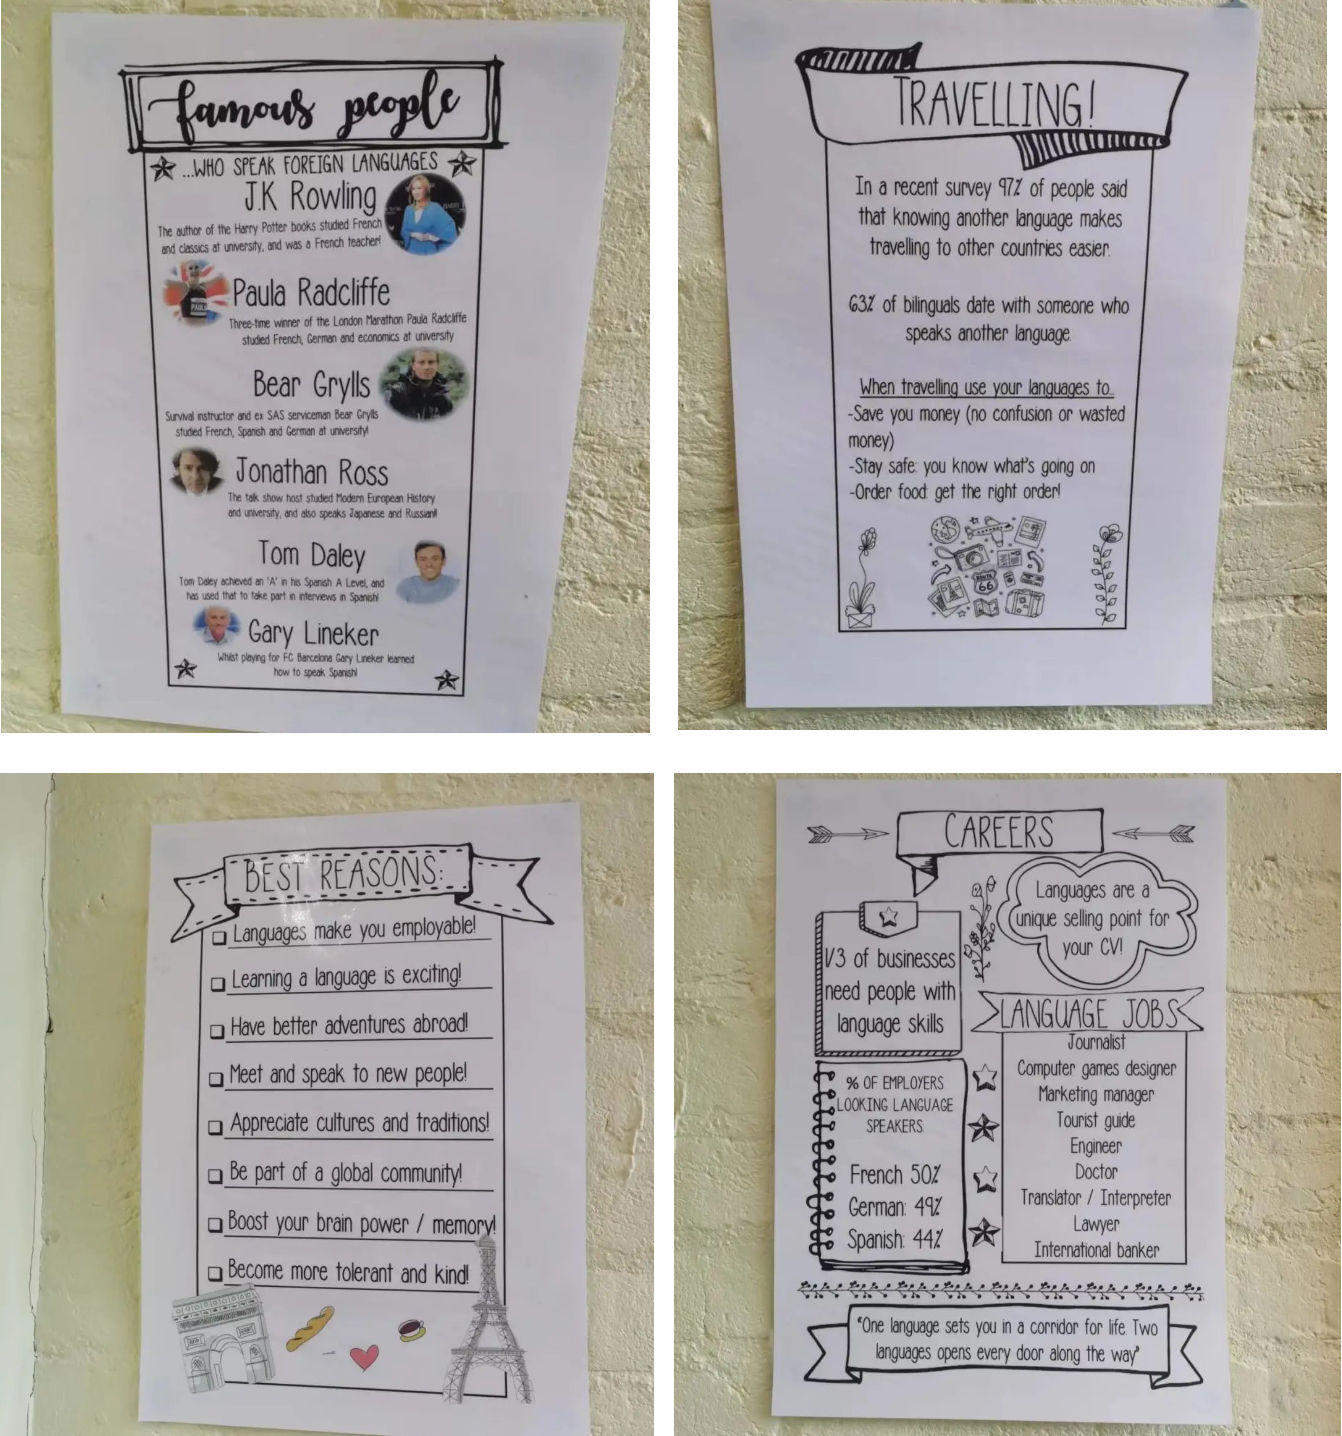 famous people
...WHO SPEAK FOREIGN LANGUAGES
J.K Rowling
The author of the Harry Potter books studied French
and classics at university, and was a French teacher!
Paula Radcliffe
Three-time winner of the London Marathon Paula Radcliffe
studied French, German and economics at university
Bear Grylls
Survival instructor and ex SAS serviceman Bear Grylls
studied French, Spanish and German at university!
Jonathan Ross
The talk show host studied Modern European History
and university, and also speaks Japanese and Russian!!
Tom Daley
Tom Daley achieved an 'A' in his Spanish A Level, and
has used that to take part in interviews in Spanish!
Gary Lineker
Whilst playing for FC Barcelona Gary Lineker learned
how to speak Spanish!
TRAVELLING!
In a recent survey 97% of people said
that knowing another language makes
travelling to other countries easier.
63% of bilinguals date with someone who
speaks another language.
When travelling use your languages to...
-Save you money (no confusion or wasted
money)
-Stay safe: you know what's going on
-Order food: get the right order!
ROUTE
66
BEST REASONS:
Languages make you employable!
Learning a language is exciting!
Have better adventures abroad!
Meet and speak to new people!
Appreciate cultures and traditions!
Be part of a global community!
Boost your brain power / memory!
Become more tolerant and kind!
CAREERS
Languages are a
unique selling point for
your CV!
1/3 of businesses
need people with
language skills
% OF EMPLOYERS
LOOKING LANGUAGE
SPEAKERS
French 50%
German: 49%
Spanish: 44%
LANGUAGE JOBS
Journalist
Computer games designer
Marketing manager
Tourist guide
Engineer
Doctor
Translator / Interpreter
Lawyer
International banker
"One language sets you in a corridor for life. Two
languages opens every door along the way"